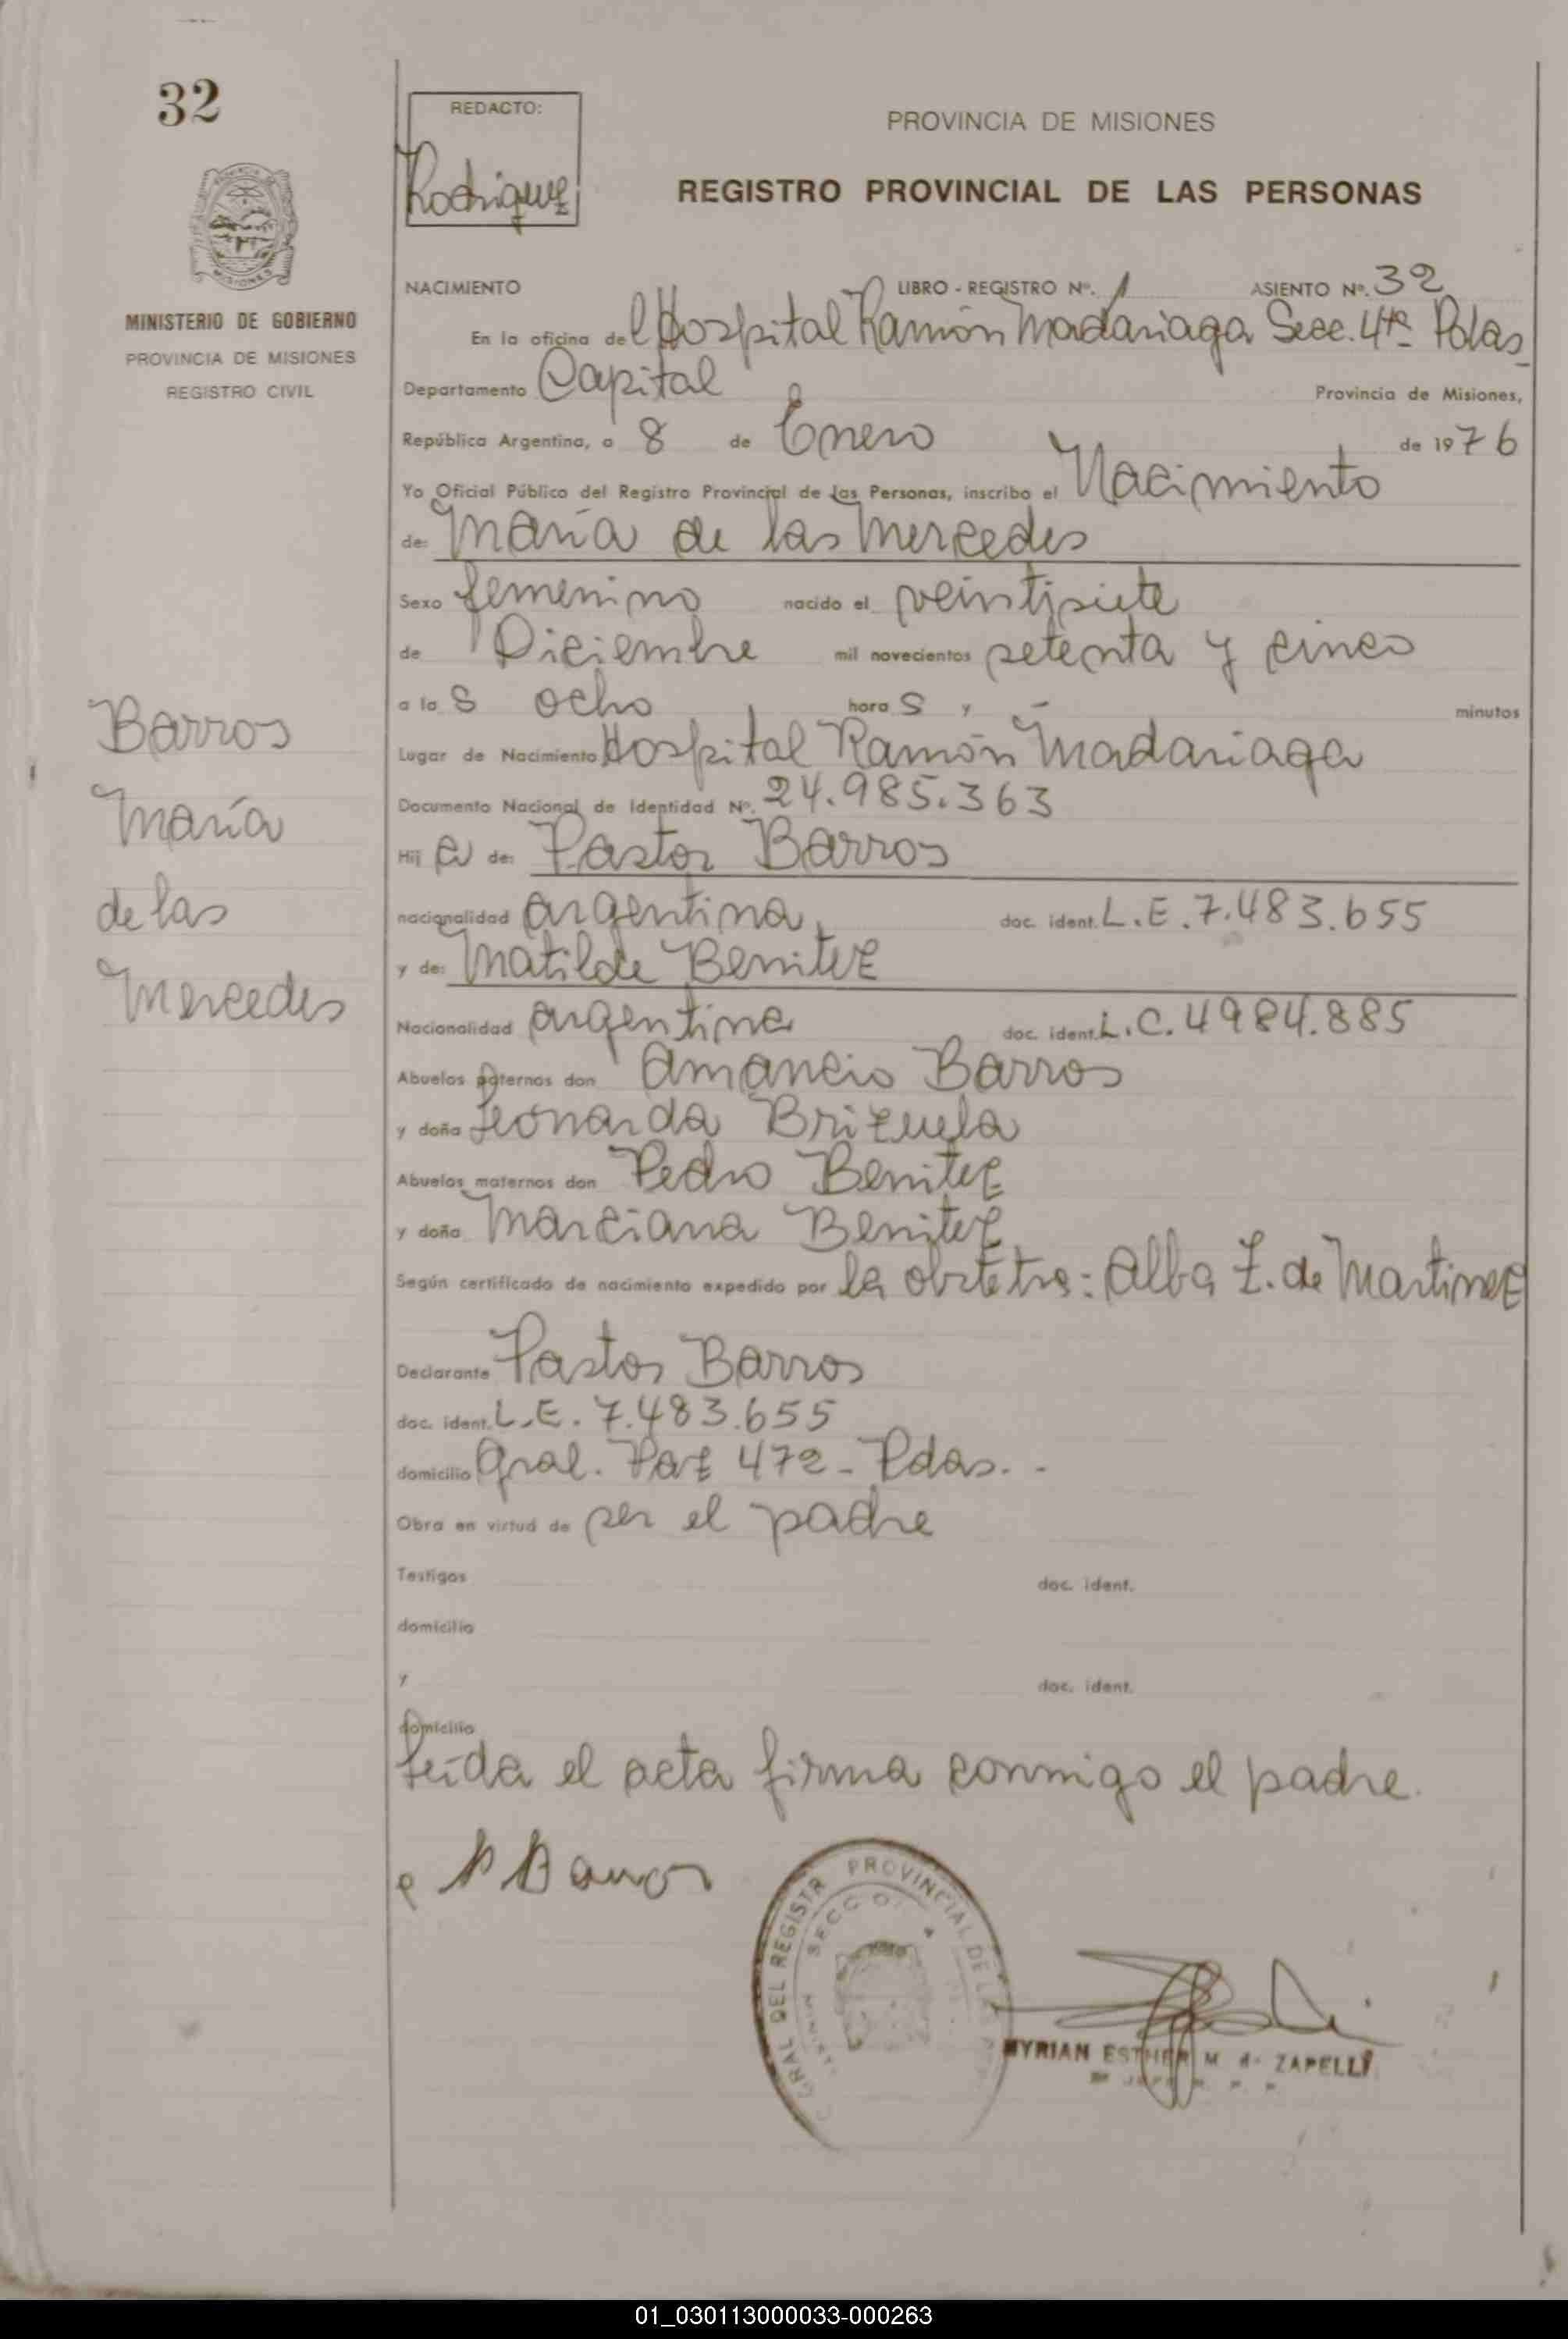 32
REDACTO:
Rodriguez
PROVINCIA DE MISIONES
REGISTRO PROVINCIAL DE LAS PERSONAS
MINISTERIO DE GOBIERNO
PROVINCIA DE MISIONES
REGISTRO CIVIL
NACIMIENTO LIBRO - REGISTRO Nº. 1 ASIENTO Nº. 32
En la oficina del Hospital Ramón Madariaga Secc. 4ta Pdas
Departamento Capital Provincia de Misiones,
República Argentina, a 8 de Enero de 1976
Yo Oficial Público del Registro Provincial de las Personas, inscribo el Nacimiento
de: María de las Mercedes
Sexo femenino nacido el veintisiete
de Diciembre mil novecientos setenta y cinco
a las ocho horas y - minutos
Lugar de Nacimiento Hospital Ramón Madariaga
Documento Nacional de Identidad Nº. 24.985.363
Hija de: Pastor Barros
nacionalidad argentina, doc. ident. L.E. 7.483.655
y de: Matilde Benitez
Nacionalidad argentina doc. ident. L.C. 4984.885
Abuelos paternos don Amancio Barros
y doña Leonarda Brizuela
Abuelos maternos don Pedro Benitez
y doña Marciana Benitez
Según certificado de nacimiento expedido por la obstetra: Alba Z. de Martinez
Declarante Pastor Barros
doc. ident. L.E. 7.483.655
domicilio Gral. Paz 472 - Pdas. -
Obra en virtud de ser el padre
Testigos doc. ident.
domicilio
y doc. ident.
domicilio
Leída el acta firma conmigo el padre.
P Barros
GRAL DEL REGISTR PROVINCIAL DE LAS
SECC 4
MYRIAN ESTHER M de ZAPELLI
Barros
María
de las
Mercedes
01_030113000033-000263